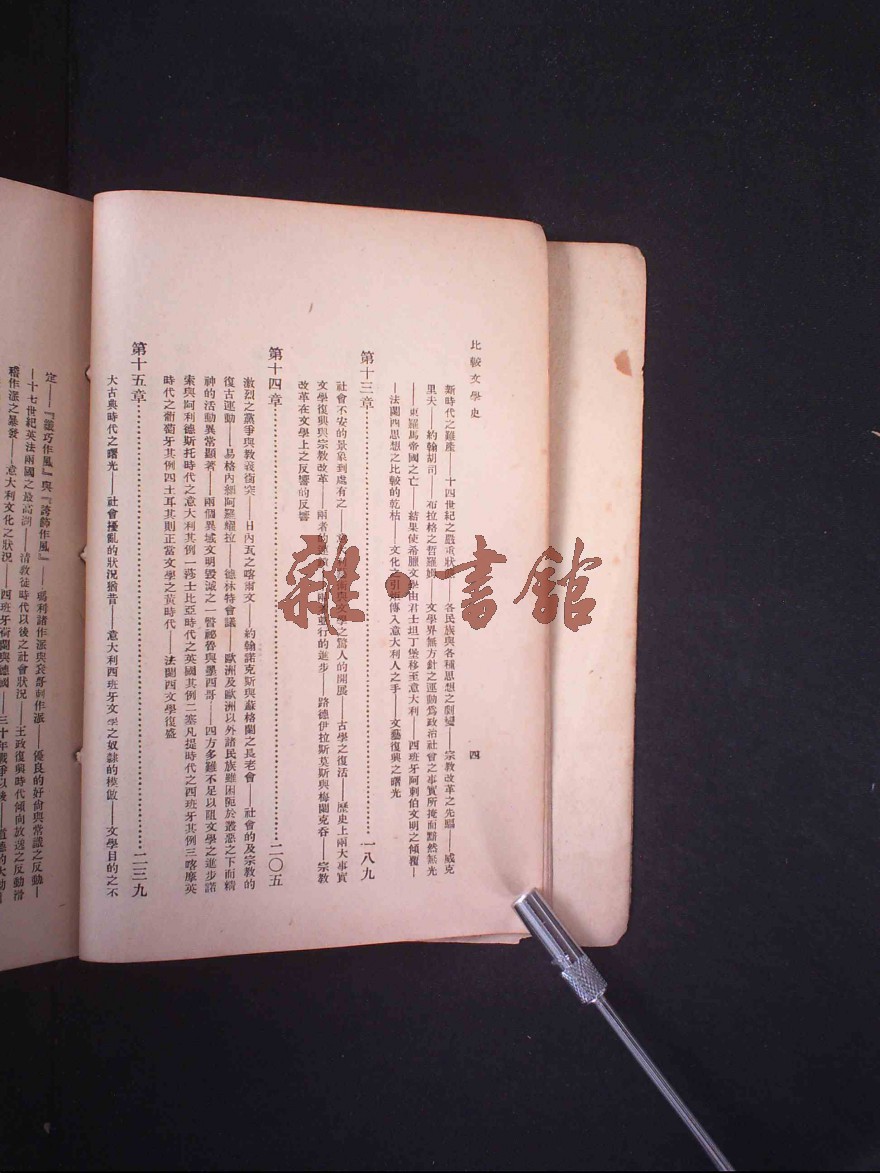 比較文學史
四
新時代之難產——十四世紀之嚴重狀——各民族與各種思想之劇變——宗教改革之先驅——威克
里夫——約翰胡司——布拉格之哲羅姆——文學界無方針之運動為政治社會之事實所掩而黯然無光
——東羅馬帝國之亡——結果使希臘文學由君士坦丁堡移至意大利——四班牙阿剌伯文明之傾覆—
—法蘭西思想之比較的乾枯——文化之引炬傳入意大利人之手——文藝復興之曙光
第十三章……一八九
社會不安的景象到處有之——與文學之驚人的開展——古學之復活——歷史上兩大事實
文學復興與宗教改革——兩者的——兩並行的進步——路德伊拉斯莫斯與梅蘭克吞——宗教
改革在文學上之反響的反響
第十四章……二〇五
激烈之黨爭與教義衝突——日內瓦之喀爾文——約翰諾克斯與蘇格蘭之長老會——社會的及宗教的
復古運動——易格內細阿羅耀拉——德林特會議——歐洲及歐洲以外諸民族雖困阨於叢惡之下而精
神的活動異常顯著——兩個異域文明毀滅之一瞥祕魯與墨西哥——四方多難不足以阻文學之進步諾
索與阿利德斯托時代之意大利其例一莎士比亞時代之英國其例二塞凡提時代之西班牙其例三喀麼英
時代之葡萄牙其例四土耳其則正當文學之黃時代——法蘭西文學復盛
第十五章……二三九
大古典時代之曙光——社會擾亂的狀況猶昔——意大利西班牙文學之奴隸的模倣——文學目的之不
定——『纖巧作風』與『誇飾作風』——瑪利諾作派與袞哥剌作派——優良的好尚與常識之反動—
—十七世紀英法兩國之最高潮——清教徒時代以後之社會狀況——王政復興時代傾向放逸之反動滑
稽作派之暴發——意大利文化之狀況——四班牙荷蘭與德國——三十年戰爭以後——道德的大動
雜·書館